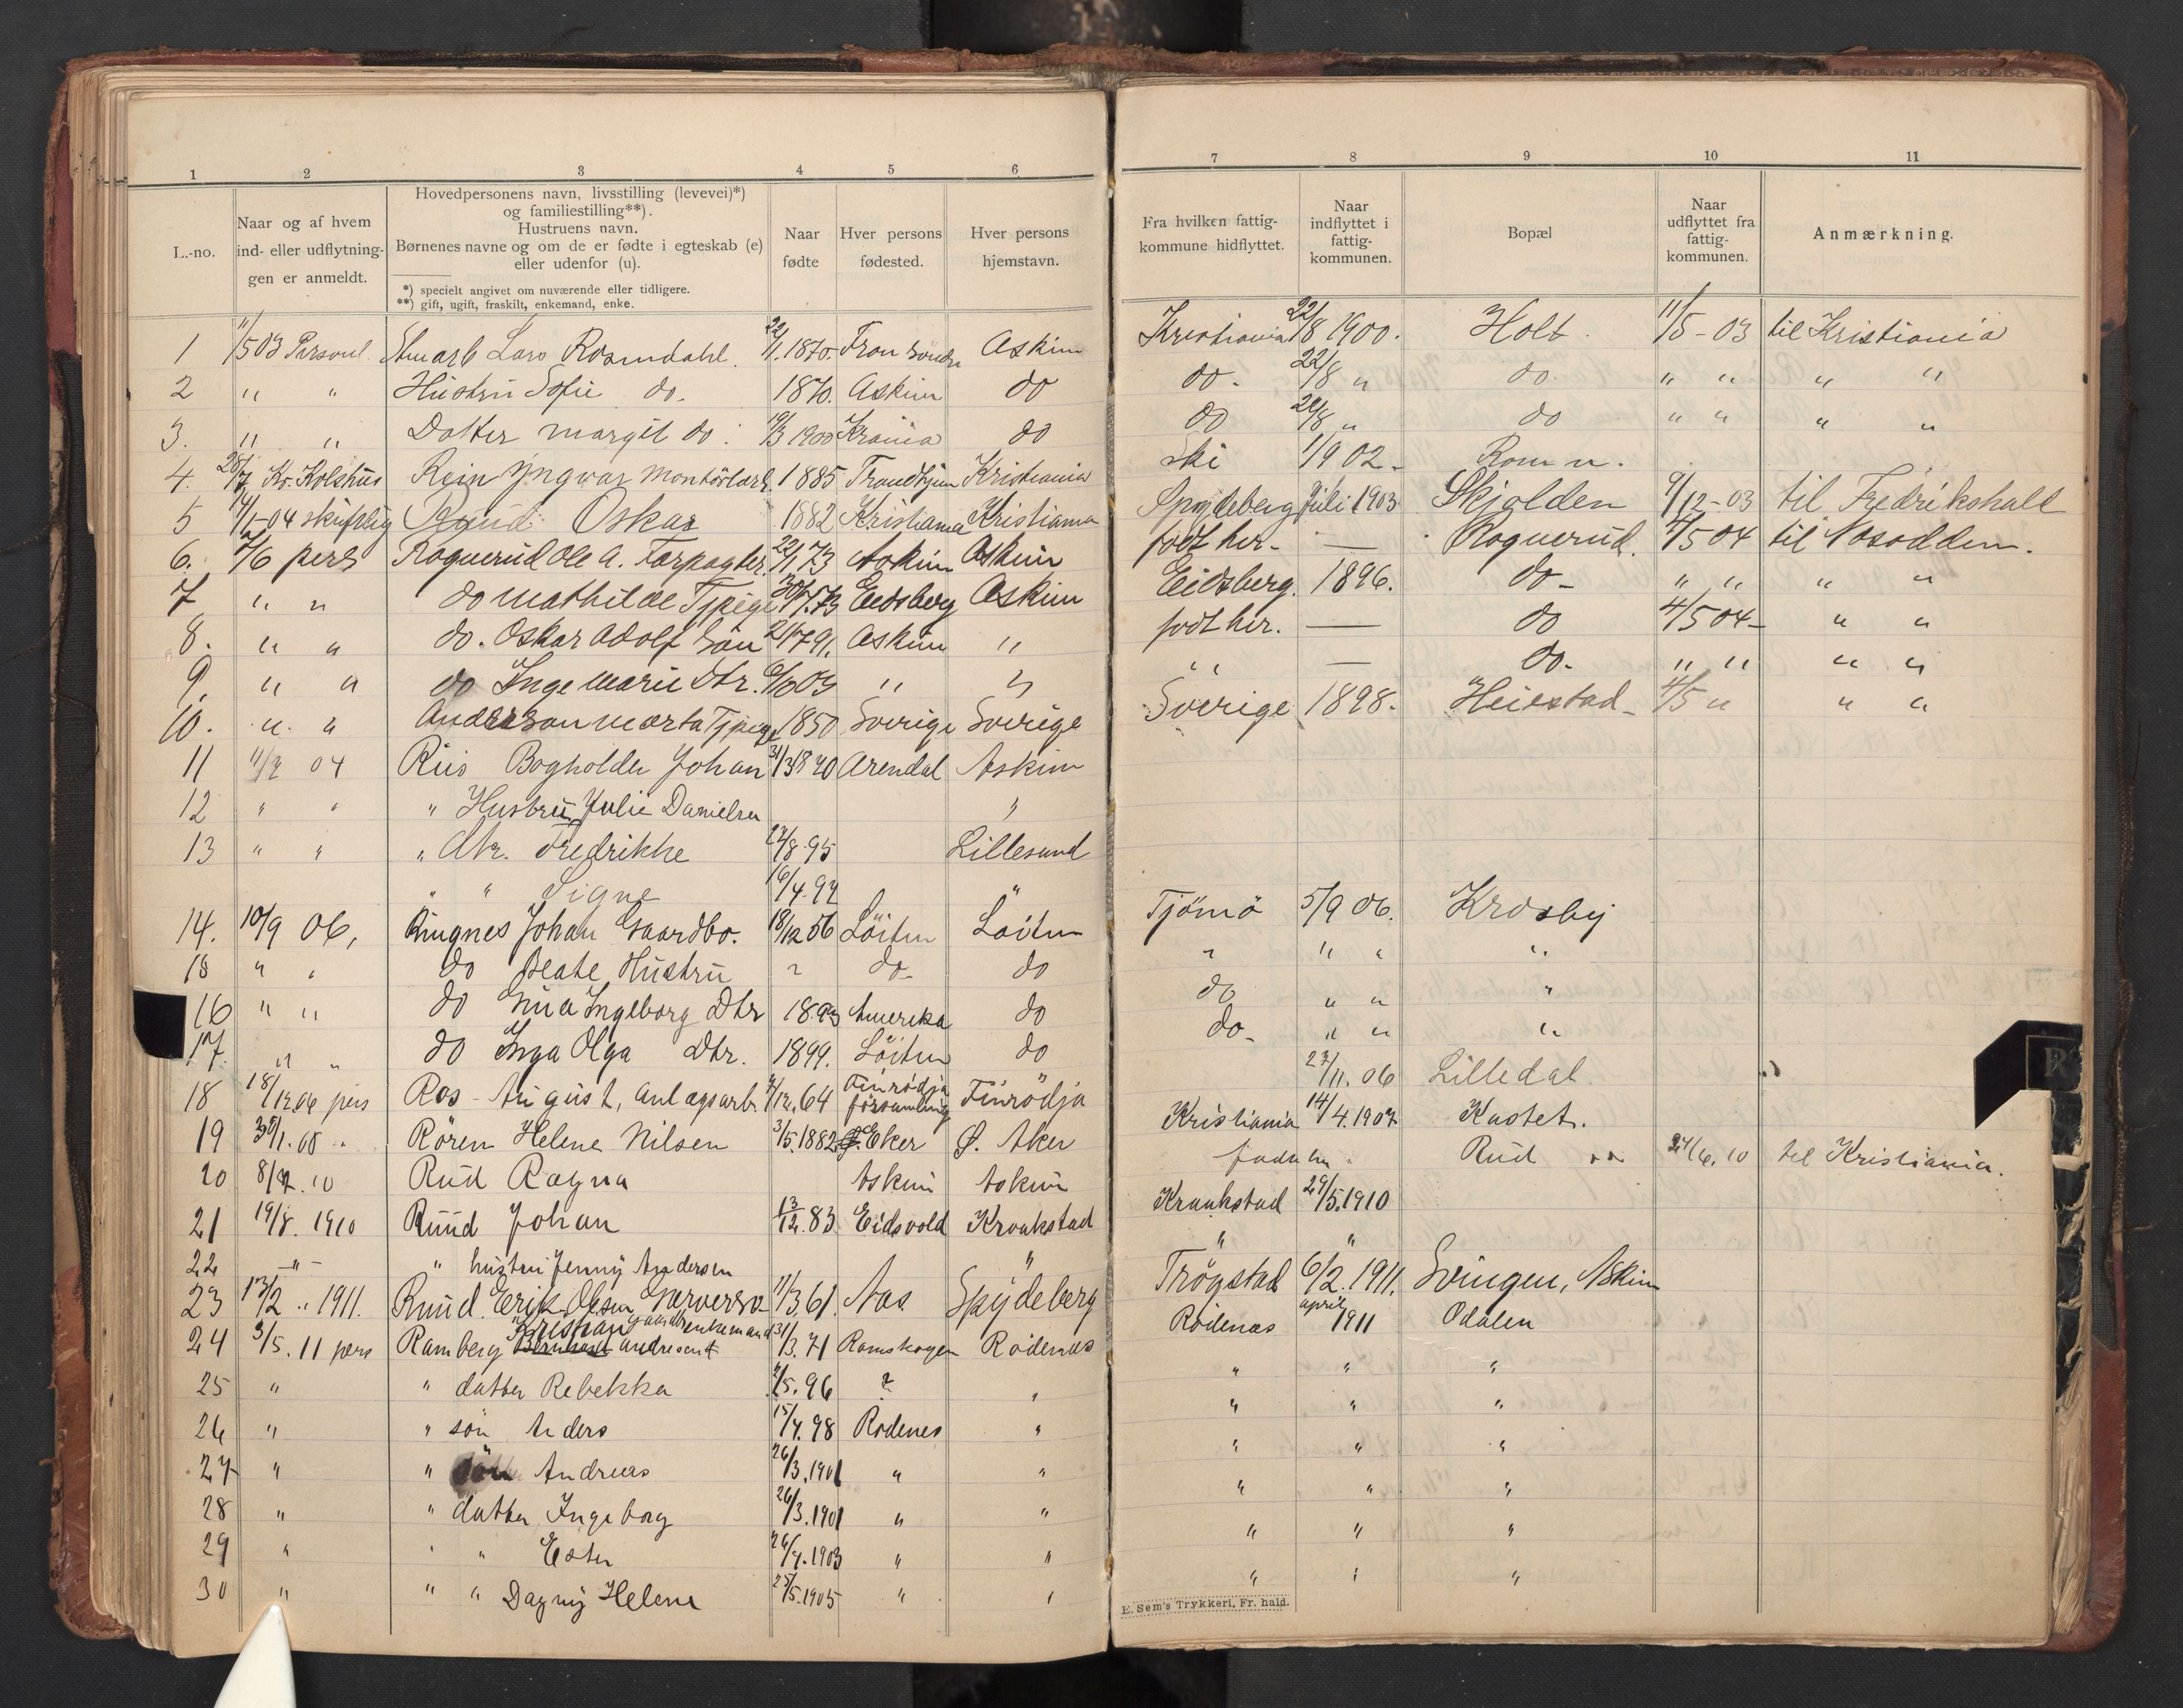 1 2 3 4 5 6
L.-no. Naar og af hvem ind- eller udflytningen er anmeldt. Hovedpersonens navn, livsstilling (levevei)*) og familiestilling**). Hustruens navn. Børnenes navne og om de er fødte i egteskab (e) eller udenfor (u). Naar fødte Hver persons fødested. Hver persons hjemstavn.
*) specielt angivet om nuværende eller tidligere.
**) gift, ugift, fraskilt, enkemand, enke.
1 11/5 03 Personl. Lars Rosendahl. 22/1. 1870. Fron Søndre Askim
2 " " Hustru Sofie do. 1870. Askim do
3. " " Datter Margit do. 1900 Krania do
4. 28/7 Kr. Kolshus Rein Yngvar Montörlærl. 1885 Trondhjem Kristiania
5 04 skriftlig Oskar 1882 Kristiania Kristiania
6. 7/6 pers Roguerud Ole A. Forpagter. 22/1 73 Askim Askim
7 " " do Mathilde Tjpige 73 Eidsberg Askim
8. " " do. Oskar Adolf Søn Askim "
9. " " do Inge Marie Dtr. 03 " "
10. " " Anderson Marta Tjpige 1850 Sverige Sverige
11 04 Riis Bogholder Johan 31/3 1840 Arendal Askim
12 " " " Hustru Julie Danielsen "
13 " " " dtr. Fredrikke 24/8 95 Lillesand
" " Signe 16/4 97 "
14. 10/9 06, Ringnes Johan Gaardbr. 18/12 56 Löiten Löiten
15 " " do Beate Hustru " do do
16 " " do Ingeborg Dtr Amerika do
17. " " do Inga Olga Dtr. 1899. Löiten do
18 18/12 06 pers Ros August, anlægsarb. 64 Finrödja församling Finrödja
19 30/1. 08 " Rören Helene Nilsen 3/5. 1882 Ø. Eker Ø. Aker
20 10 Rud Ragna Askim Askim
21 19/8. 1910 Ruud Johan 13/12. 83 Eidsvold Kraakstad
22 -"- " hustru Jenny Andersen "
23 13/2 " 1911. Ruud. Erik Olsen Garversv. 11/3 61. Aas Spydeberg
24 3/5. 11 pers Ramberg Kristian Andresen enkemand 31/3. 71 Romskogen Rödenæs
25 " " datter Rebekka 96 ? "
26 " " søn Anders 15/4. 98 Rödenes "
27 " " søn Andreas 26/3. 1901 " "
28 " " datter Ingeborg 26/3. 1901 " "
29 " " " Ester 26/4. 1903 " "
30 " " " Dagny Helene 25/5. 1905 " "
7 8 9 10 11
Fra hvilken fattigkommune hidflyttet. Naar indflyttet i fattigkommunen. Bopæl Naar udflyttet fra fattigkommunen. Anmærkning.
Kristiania 22/8 1900. Holt. 11/5 - 03 til Kristiania
do. 22/8 " do. " " " "
do 22/8 " do " " " "
Ski 1/9 02. Rom n.
Spydeberg Juli 1903 Skjolden 9/12 - 03 til Fredrikshald
født her. — Roguerud. 4/5 04 til Nesodden.
Eidsberg. 1896. do. " " " "
født her. — do 4/5 04 " "
" — do. " " " "
Sverige 1898. Heiestad 4/5 " " "
Tjömö 5/9 06. Krosby
" " " "
do " " "
do. " " "
27/11. 06 Lilledal.
Kristiania 14/4. 1907 Kastet.
født her Rud 24/6. 10 til Kristiania.
Kraakstad 29/5. 1910
" "
Trögstad 6/2. 1911. Svingen, Askim
Rödenæs april 1911 Odalen
" " "
" " "
" " "
" " "
" " "
" " "
E. Sem's Trykkeri, Fr. hald.